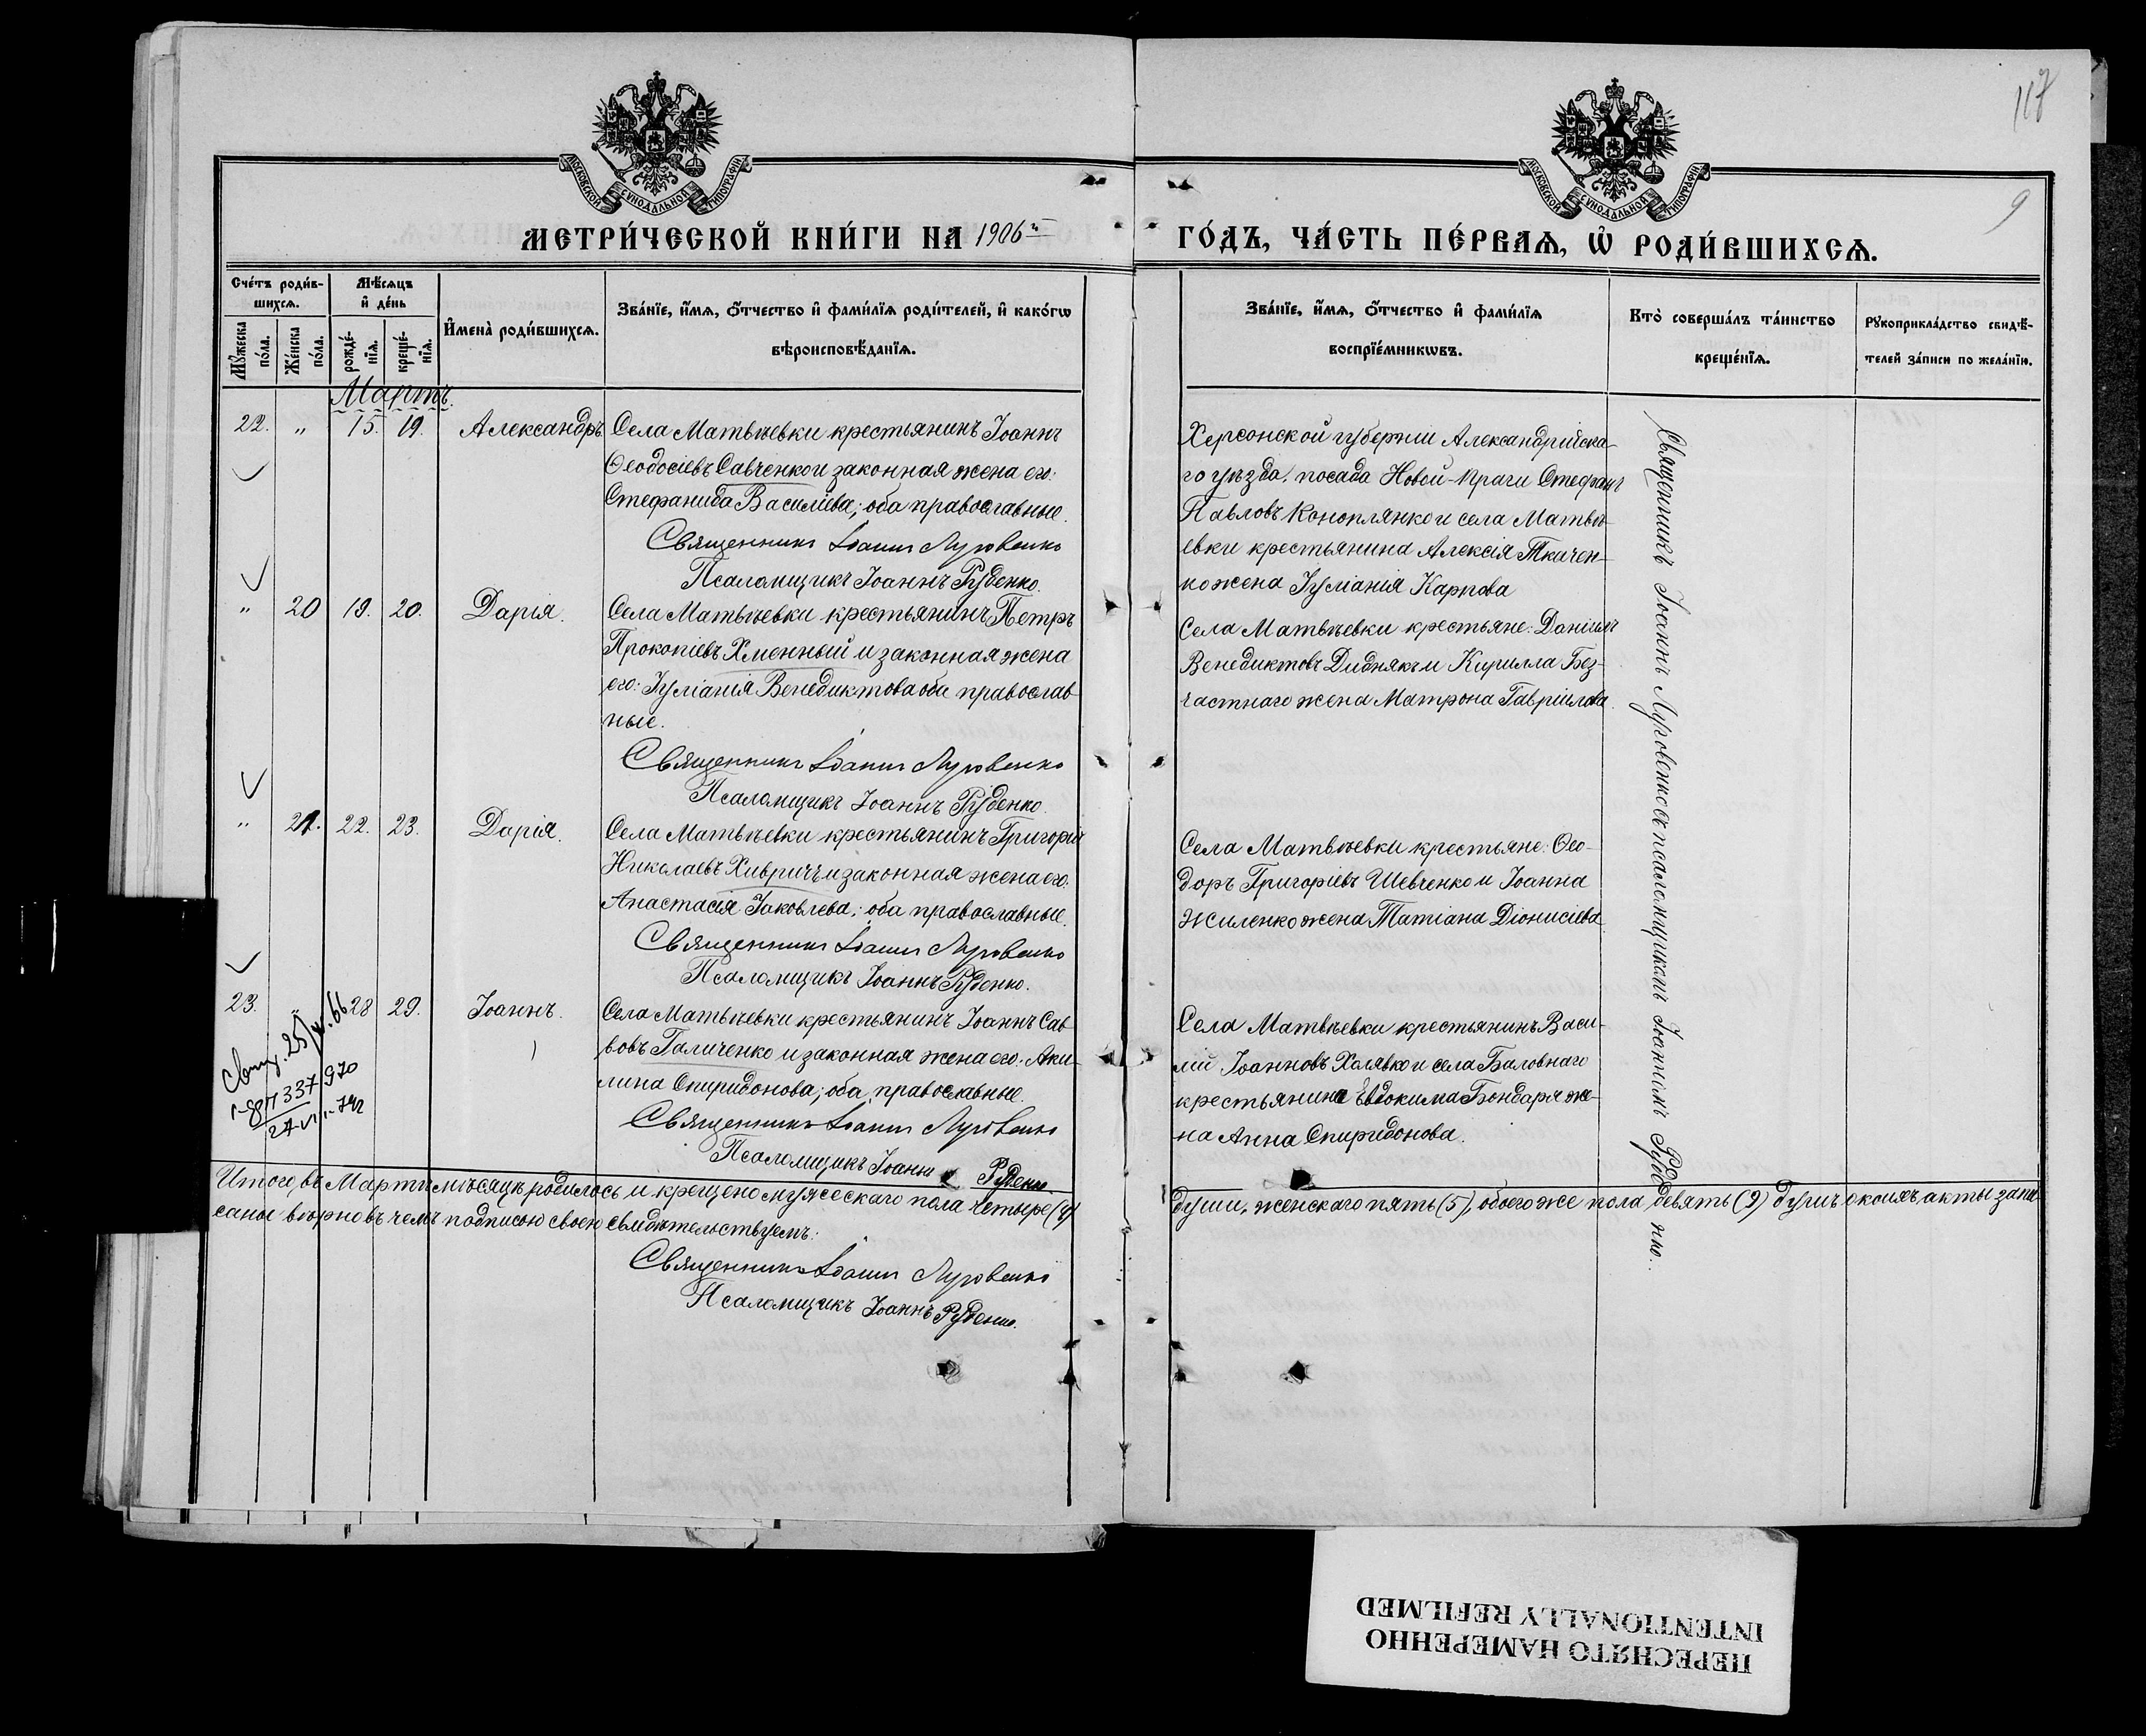 117
9
МОСКОВСКОЙ СѴНОДАЛЬНОЙ ТИПОГРАФІИ
МОСКОВСКОЙ СѴНОДАЛЬНОЙ ТИПОГРАФІИ
МЕТРИ́ЧЕСКОЙ КНИ́ГИ НА 1906й
ГО́ДЪ, ЧА́СТЬ ПЕ́РВАѦ, Ѡ҆ РОДИ́ВШИХСѦ.
Сче́тъ роди́в-
шихсѧ.
Мꙋ́жеска по́ла.
Же́нска по́ла.
Мѣ́сяцъ
и҆ де́нь
рожде́-
нїѧ.
креще́-
нїѧ.
И҆мена̀ роди́вшихсѧ.
Зва́нїе, и҆́мѧ, ѻ҆́тчество и҆ фами́лїѧ роди́телей, и҆ како́гѡ
вѣроисповѣ́данїѧ.
Зва́нїе, и҆́мѧ, ѻ҆́тчество и҆ фами́лїѧ
воспрїе́мникѡвъ.
Кто̀ соверша́лъ та́инство
креще́нїѧ.
Рꙋкоприкла́дство свидѣ́-
телей за́писи по жела́нїю.
Мартъ.
22. " 15. 19. Александръ.
Села Матвѣевки крестьянинъ Іоаннъ
Ѳеодосіевъ Савченко и законная жена его:
Стефанида Василіева; оба православные.
Священникъ Іоаннъ Луговенко
Псаломщикъ Іоаннъ Руденко.
Херсонской губерніи Александрійска-
го уѣзда, посада Новой-Праги Стефанъ
Павловъ Коноплянко и села Матвѣ-
евки крестьянина Алексія Ткачен-
ко жена Іуліанія Карпова
" 20 19. 20. Дарія.
Села Матвѣевки крестьянинъ Петръ
Прокопіевъ Хменный и законная жена
его: Іуліанія Венедиктова оба православ-
ные.
Священникъ Іоаннъ Луговенко
Псаломщикъ Іоаннъ Руденко
Села Матвѣевки крестьяне: Даніилъ
Венедиктовъ Диднякъ и Кирилла Без-
частнаго жена Матрона Гавріилова.
" 21. 22. 23. Дарія.
Села Матвѣевки крестьянинъ Григорій
Николаевъ Хивричъ и законная жена его:
Анастасія Іаковлева; оба православные.
Священникъ Іоаннъ Луговенко
Псаломщикъ Іоаннъ Руденко.
Села Матвѣевки крестьяне: Ѳео-
доръ Григоріевъ Шевченко и Іоанна
Жиленко жена Татіана Діонисіева
23. 28 29. Іоаннъ.
Села Матвѣевки крестьянинъ Іоаннъ Сав-
вовъ Галиченко и законная жена его: Аки-
лина Спиридонова; оба православные.
Священникъ Іоаннъ Луговенко
Псаломщикъ Іоаннъ Руденко
Села Матвѣевки крестьянинъ Васи-
лій Іоанновъ Халявко и села Баловнаго
крестьянина Евдокима Бондаря же-
на Анна Спиридонова.
337970
Священникъ Іоаннъ Луговенко съ псаломщикомъ Іоанномъ Руденко.
Итого, въ Мартѣ мѣсяцѣ родилось и крещено мужескаго пола четыре (4)
души, женскаго пять (5), обоего же пола девять (9) душъ о коихъ акты запи-
саны вѣрно въ чемъ подписью своею свидѣтельствуемъ:
Священникъ Іоаннъ Луговенко
Псаломщикъ Іоаннъ Руденко.
ПЕРЕСНЯТО НАМЕРЕННО
INTENTIONALLY REFILMED